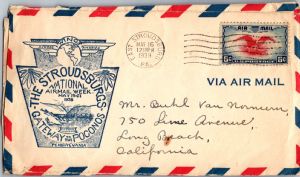 THE STROUDSBURGS
NATIONAL
AIR MAIL WEEK
MAY 15-21
1938
GATEWAY TO THE POCONOS
PENNSYLVANIA
EAST STROUDSBURG
MAY 16
12 30 PM
1938
PA.
6c
6c
VIA AIR MAIL
Mr. Buhl Van Norman,
750 Lime Avenue,
Long Beach,
California